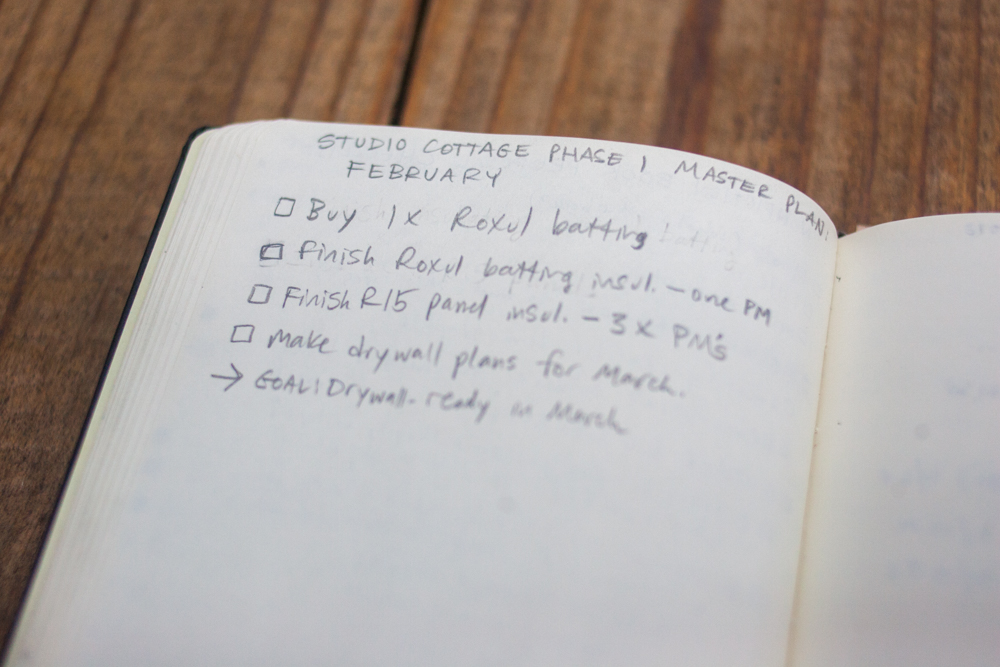 STUDIO COTTAGE PHASE 1 MASTER PLAN:
FEBRUARY
□ Buy 1x Roxul batting
□ Finish Roxul batting insul. — one PM
□ Finish R15 panel insul. — 3x PM's
□ Make drywall plans for March.
→ GOAL: Drywall-ready in March